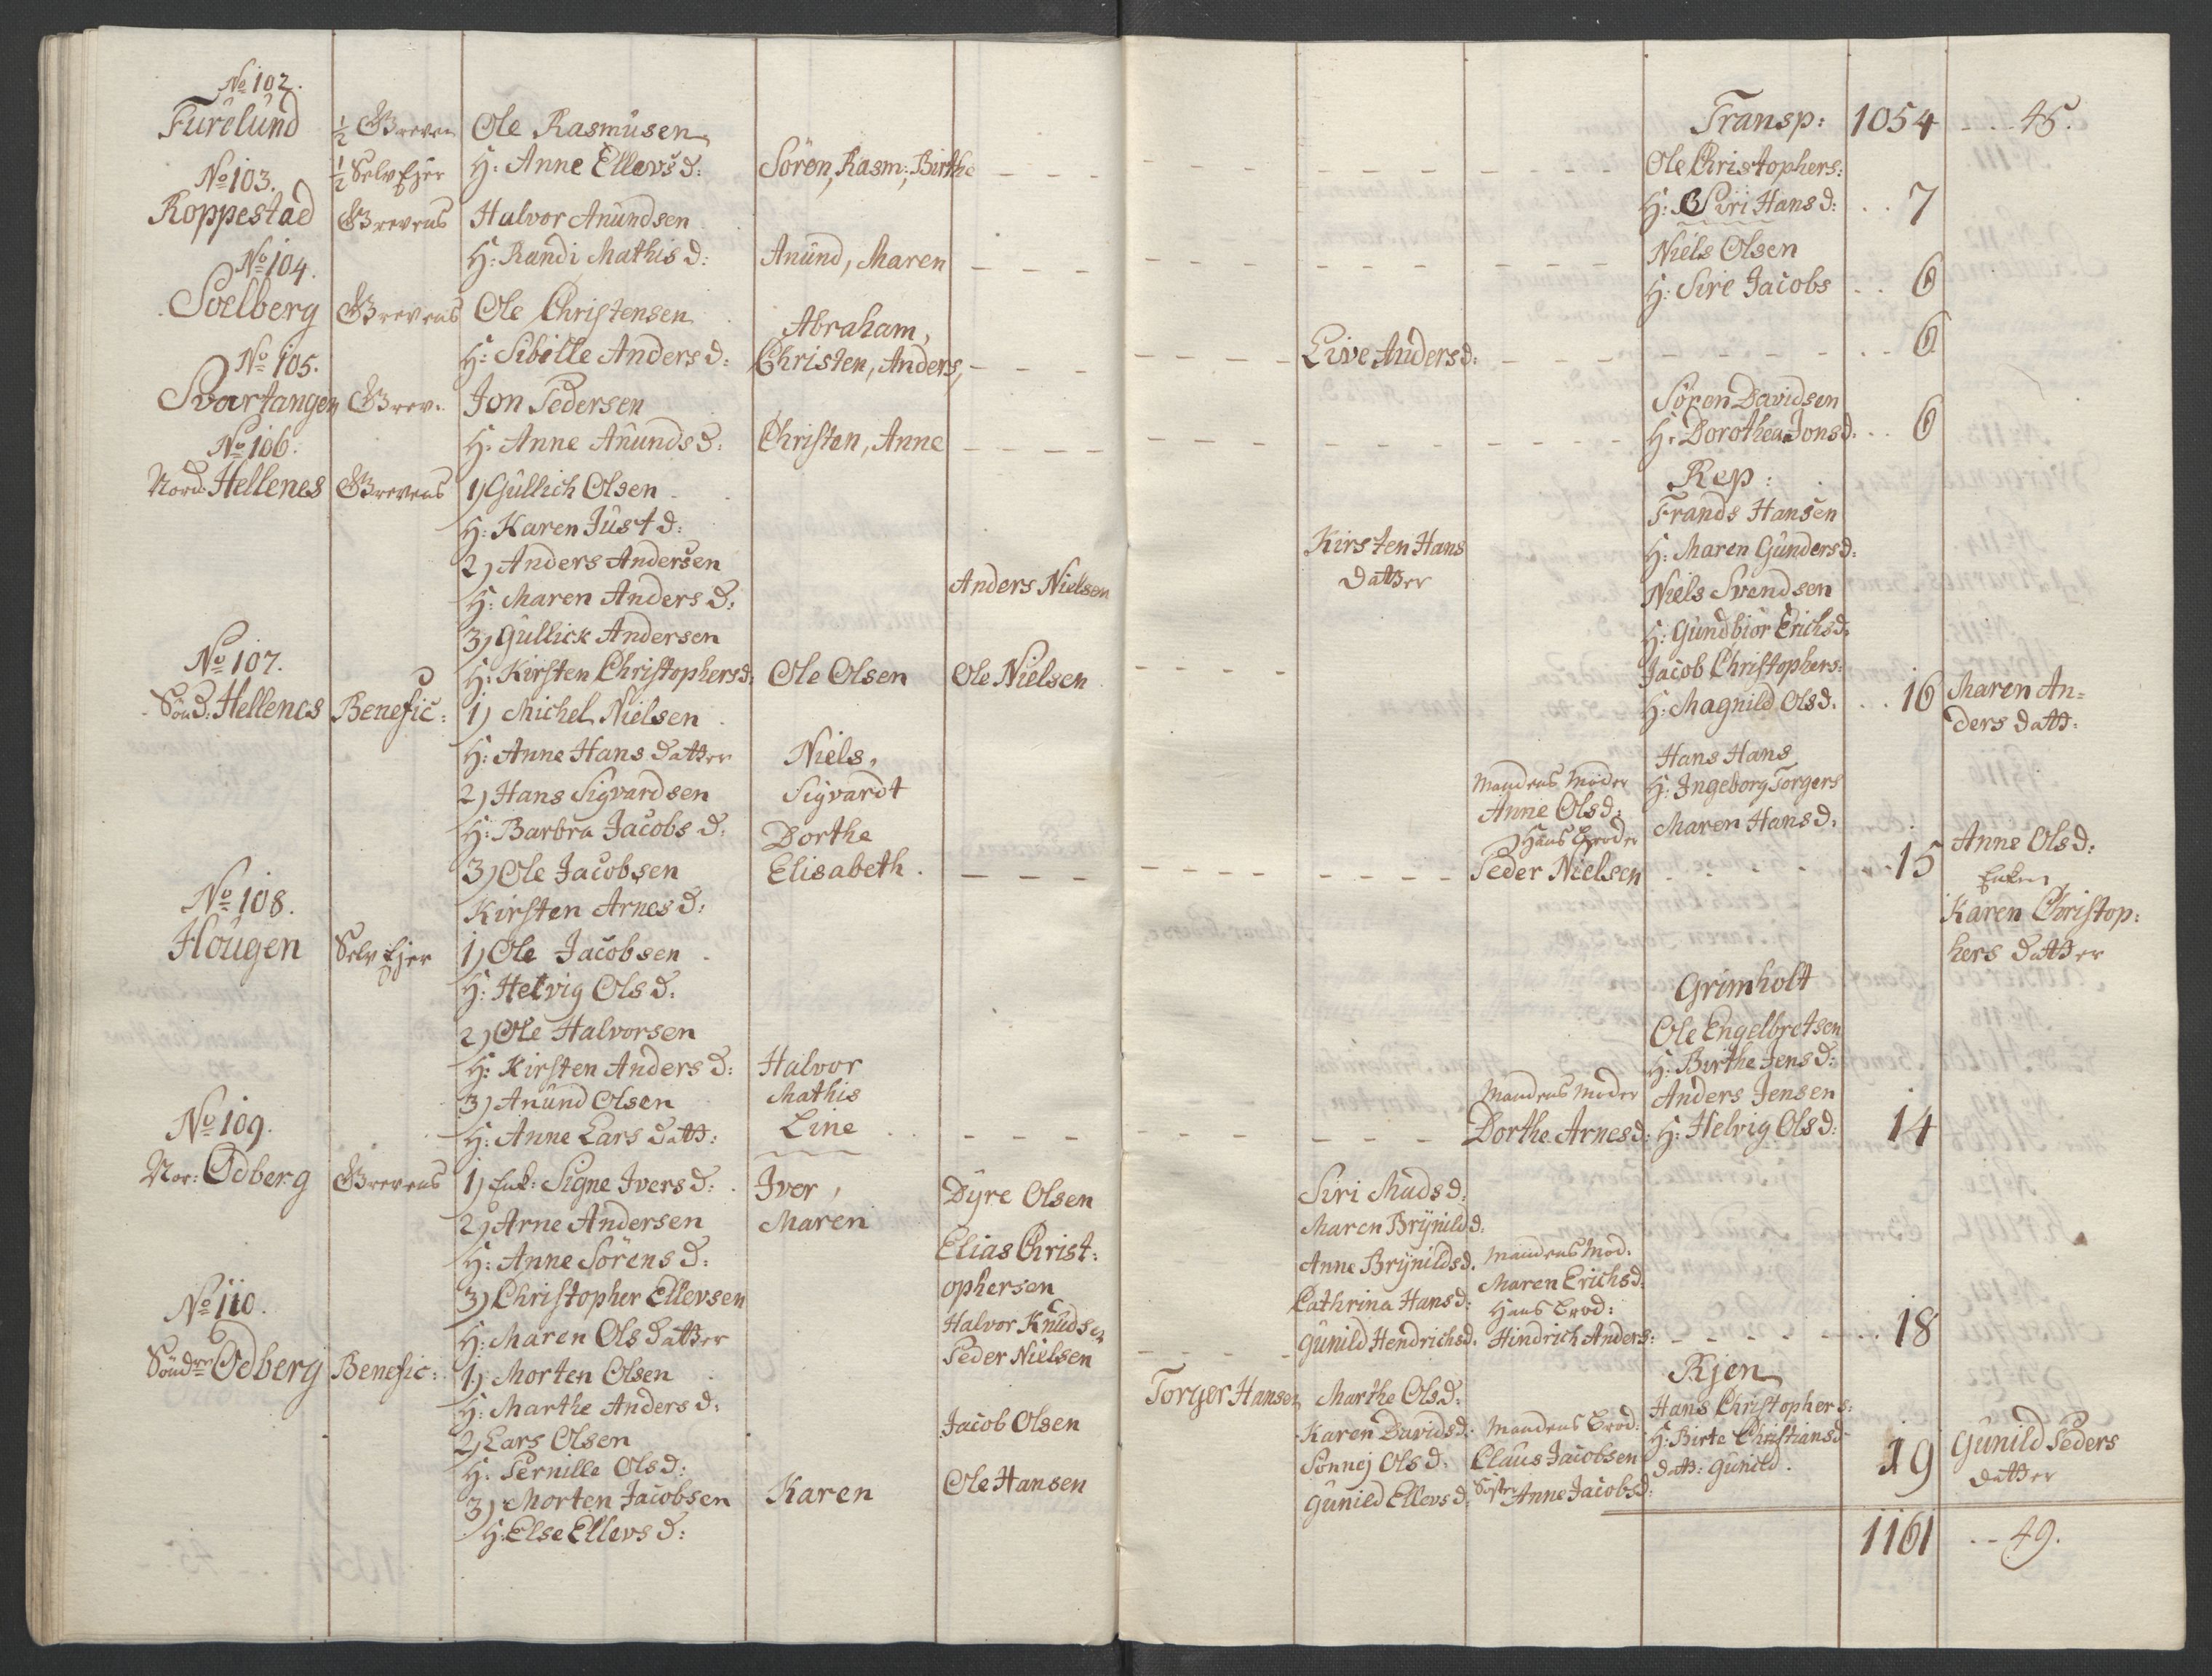 No 102.
Furulund
1/2 Greven
Ole Rasmusen
Transp: 1054 - - - 45.
No 103.
1/2 Selv Ejer
H: Anne Ellevs d:
Sören, Rasm:, Birthe
Ole Christophers:
H: Siri Hans d: . . 7
Roppestad
Grevens
Halvor Anundsen
H: Randi Mathis d:
Anund, Maren
Niels Olsen
H: Sire Jacobs . . 6
No 104.
Soelberg
Grevens
Ole Christensen
Abraham,
H: Sibille Anders d:
Christen, Anders,
Live Anders d:
. . 6
No 105.
Svartangen
Grev:
Jon Pedersen
H: Anne Anunds d:
Christen, Anne
Sören Davidsen
H: Dorothea Jonsd. . . 6
No 106.
Nord: Hellenes
Grevens
1) Gullich Olsen
H: Karen Just d:
2) Anders Andersen
H: Maren Anders d:
3) Gullick Andersen
H: Kirsten Christophers d:
Ole Olsen
Anders Nielsen
Ole Nielsen
Kirsten Hans
datter
Rep:
Frands Hansen
H: Maren Gunders d:
Niels Svendsen
H: Gundbior Erichsd.
Jacob Christophers:
H: Magnild Olsd. . . 16
Maren An=
ders datt:
No 107.
Sönd: Hellenes
Benefic:
1) Michel Nielsen
H: Anne Hans datter
2) Hans Sigvardsen
H: Barbra Jacobs d:
3) Ole Jacobsen
Kirsten Arnes d:
Niels,
Sigvardt
Dorthe
Elisabeth
Mandens Moder
Anne Olsd:
Hans Broder
Peder Nielsen
Hans Hans
H: Ingeborg Torgers
Maren Hansd.
15
Anne Olsd:
Enken
Karen Christop:
hers datter
No 108.
Hougen
Selv Ejer
1) Ole Jacobsen
H: Helvig Ols d:
2) Ole Halvorsen
H: Kirsten Anders d:
3) Anund Olsen
H: Anne Lars datt:
Halvor
Mathis
Line
Mandens Moder
Dorthe Arnesd:
Grimholt
Ole Engelbretsen
H: Birthe Jens d:
Anders Jensen
H: Helvig Olsd:
14
No 109.
Nor: Odberg
Grevens
1) Enk: Signe Ivers d:
2) Arne Andersen
H: Anne Sörens d:
3) Christopher Ellevsen
H: Maren Ols datter
Iver,
Maren
Dyre Olsen
Elias Christ:
ophersen
Halvor Knudsen
Peder Nielsen
Siri Madsd:
Maren Brynild d:
Anne Brynildsd.
Cathrina Hansd:
Gunild Hendrichsd.
Mandens Mod:
Maren Erichsd:
Hans Brod:
Hindrich Anders:
18
No 110.
Söndre Odberg
Benefic:
1) Morten Olsen
H: Marthe Anders d:
2) Lars Olsen
H: Pernille Olsd:
3) Morten Jacobsen
H: Else Ellevs d:
Karen
Jacob Olsen
Ole Hansen
Torger Hansen
Marthe Olsd:
Karen Davidsd:
Sonnej Olsd.
Gunild Ellevsd:
Mandens Brod:
Claus Jacobsen
Söster Anne Jacobsd:
Kjen
Hans Christophers:
H: Birte Christiansd
datt: Gunild.
19
Gunild Peders
datter
1161 - - 49.